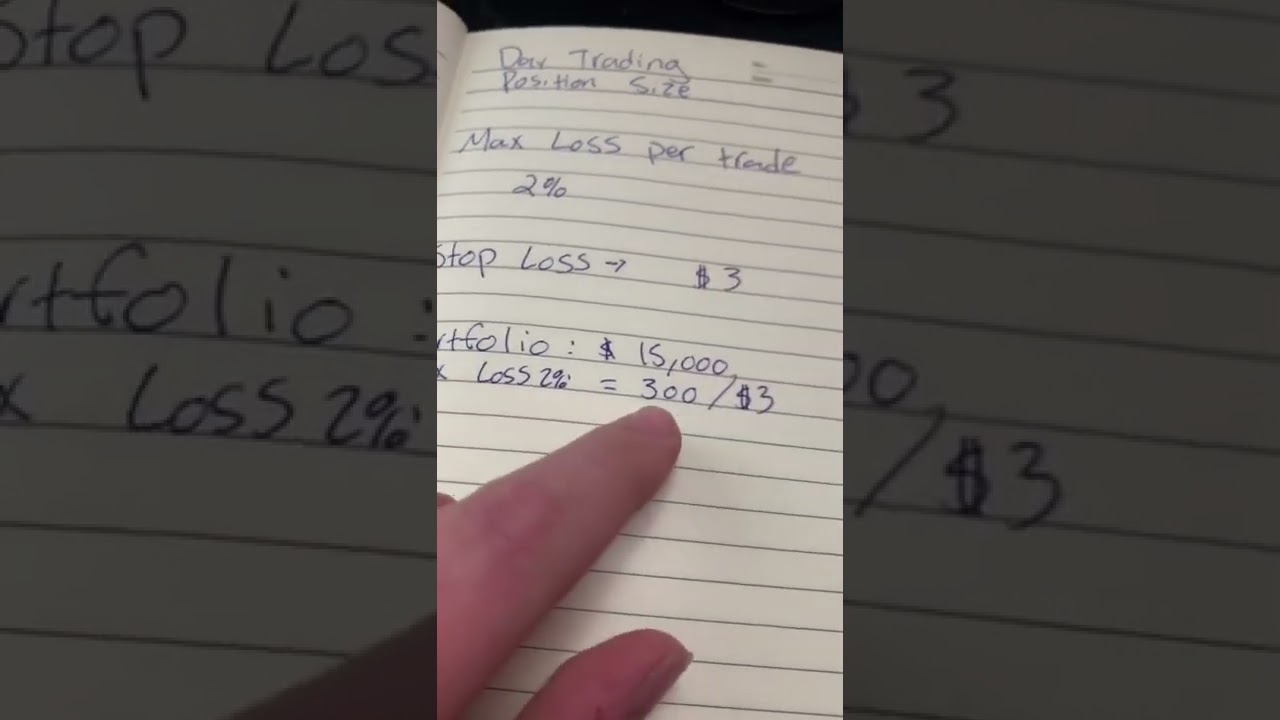 Day Trading
Position Size
Max Loss per trade
2%
Stop Loss → $3
rtfolio: $ 15,000
x Loss 2% = 300/$3